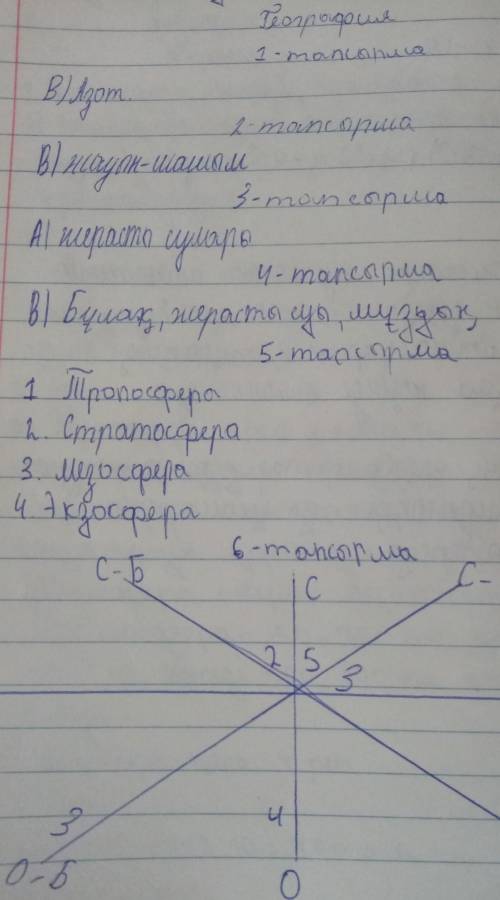 География
1-тапсырма
В) Азот.
2-тапсырма
В) жауын-шашым
3-тапсырма
А) жерасты сулары
4-тапсырма
В) Бұлақ, жерасты суы, мұздық,
5-тапсырма
1 Тропосфера
2. Стратосфера
3. Мезосфера
4. Экзосфера
6-тапсырма
С-Б
С
С-
2 5
3
3
4
О-Б
О